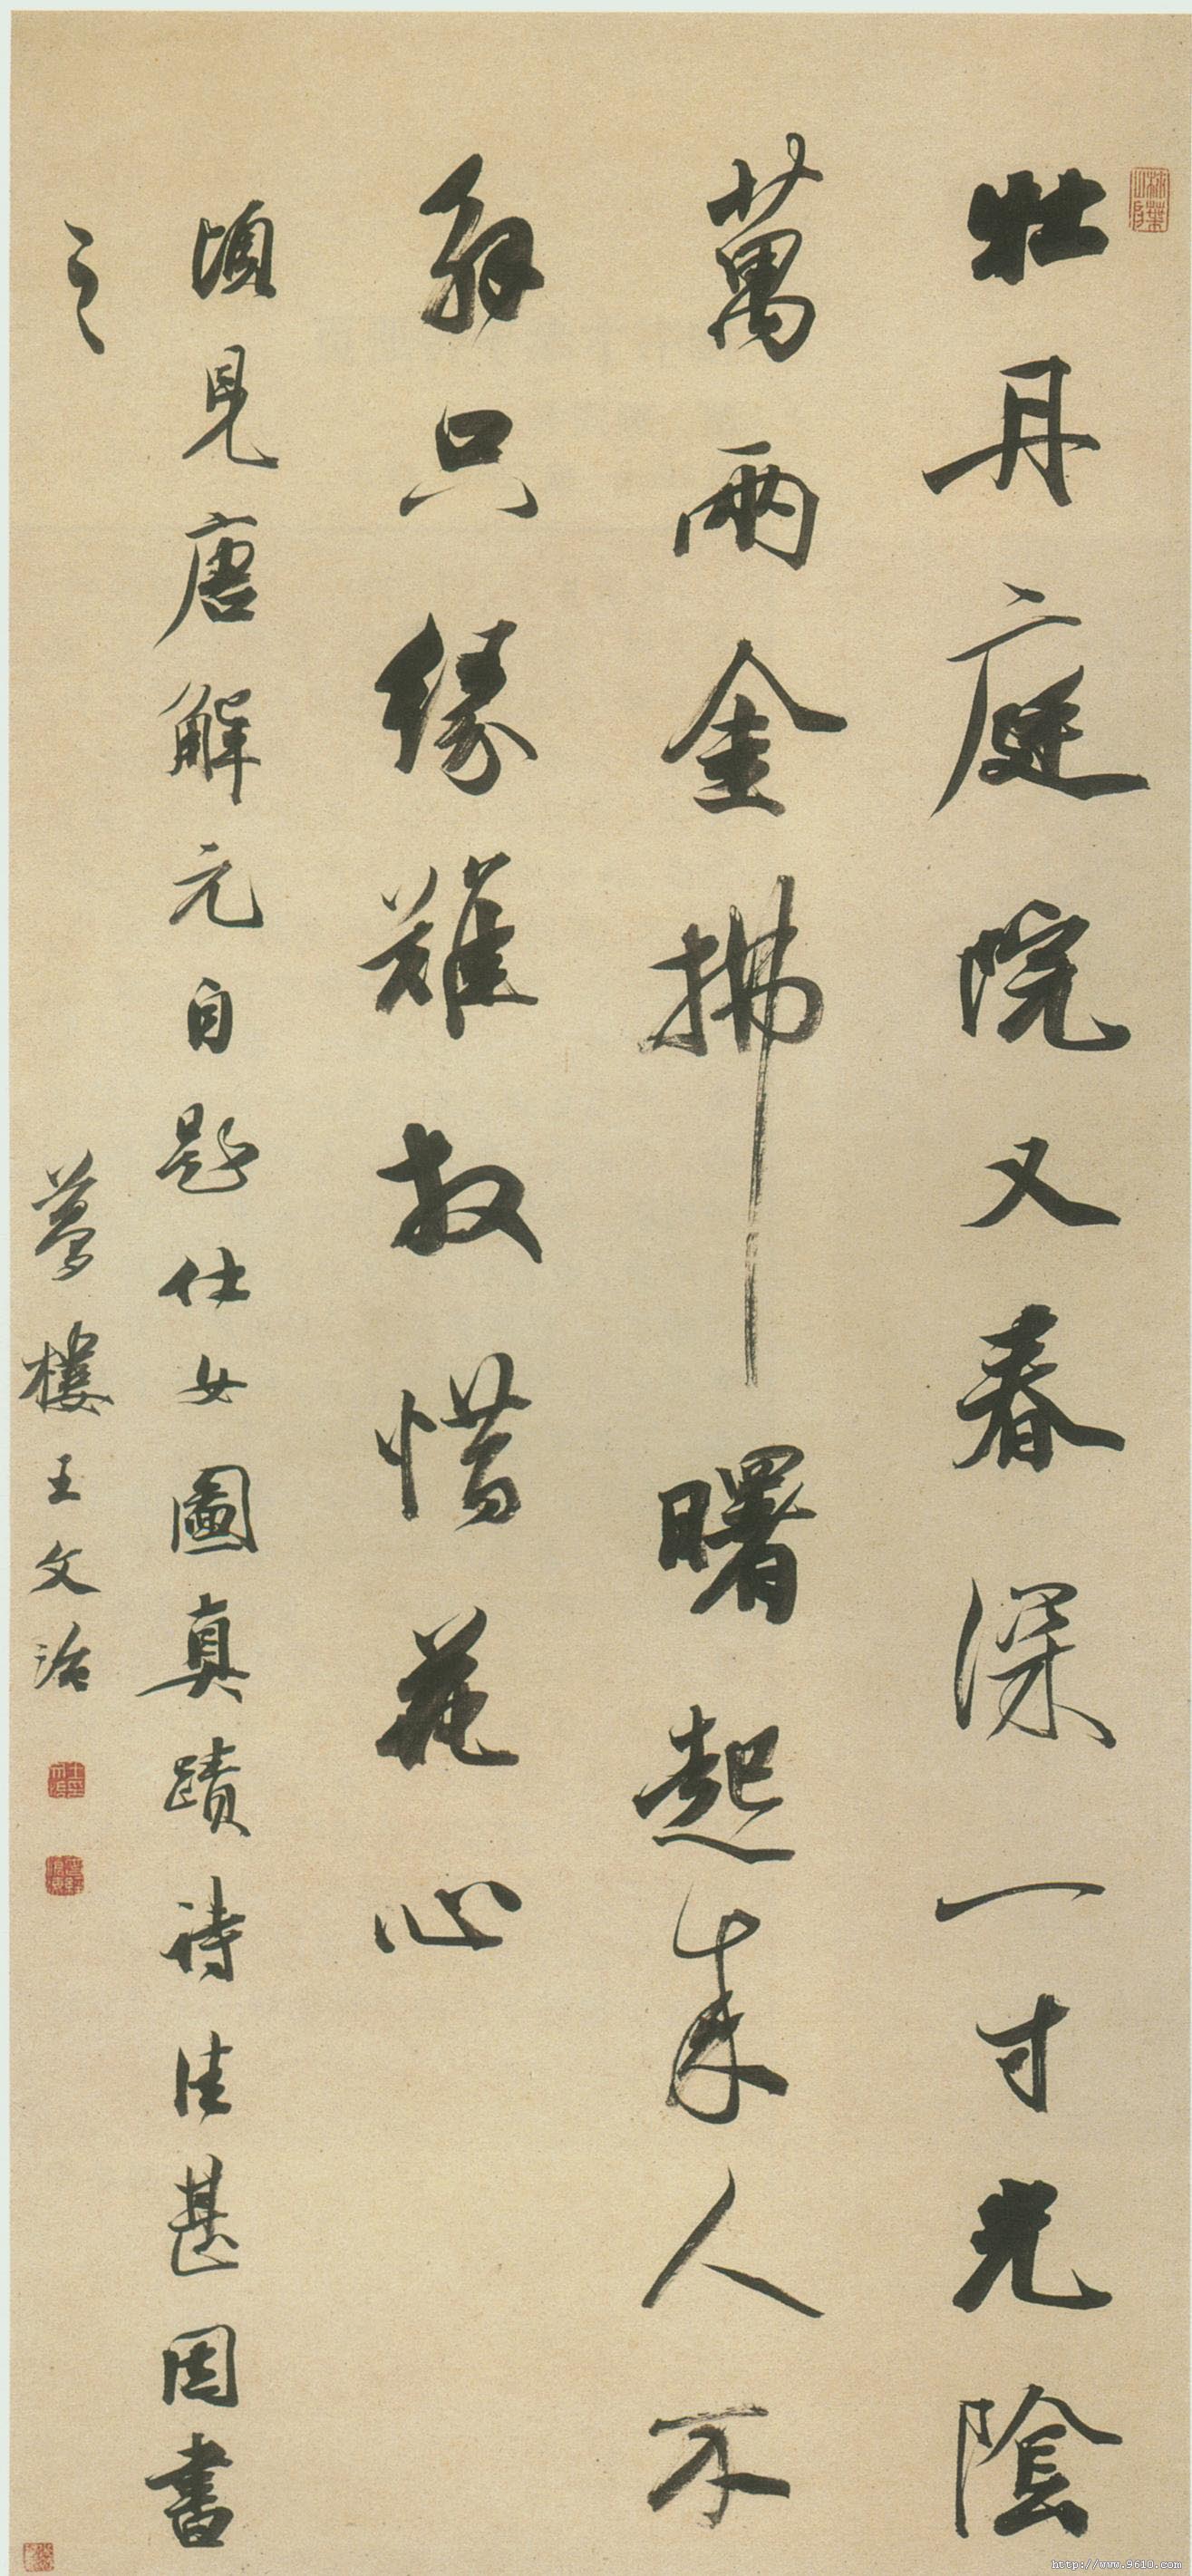 牡丹庭院又春深一寸光陰
萬兩金拂曙起来人不
解只緣難放惜花心
頃見唐解元自題仕女圖真蹟詩佳甚因書
之
夢樓王文治
http://www.9610.com